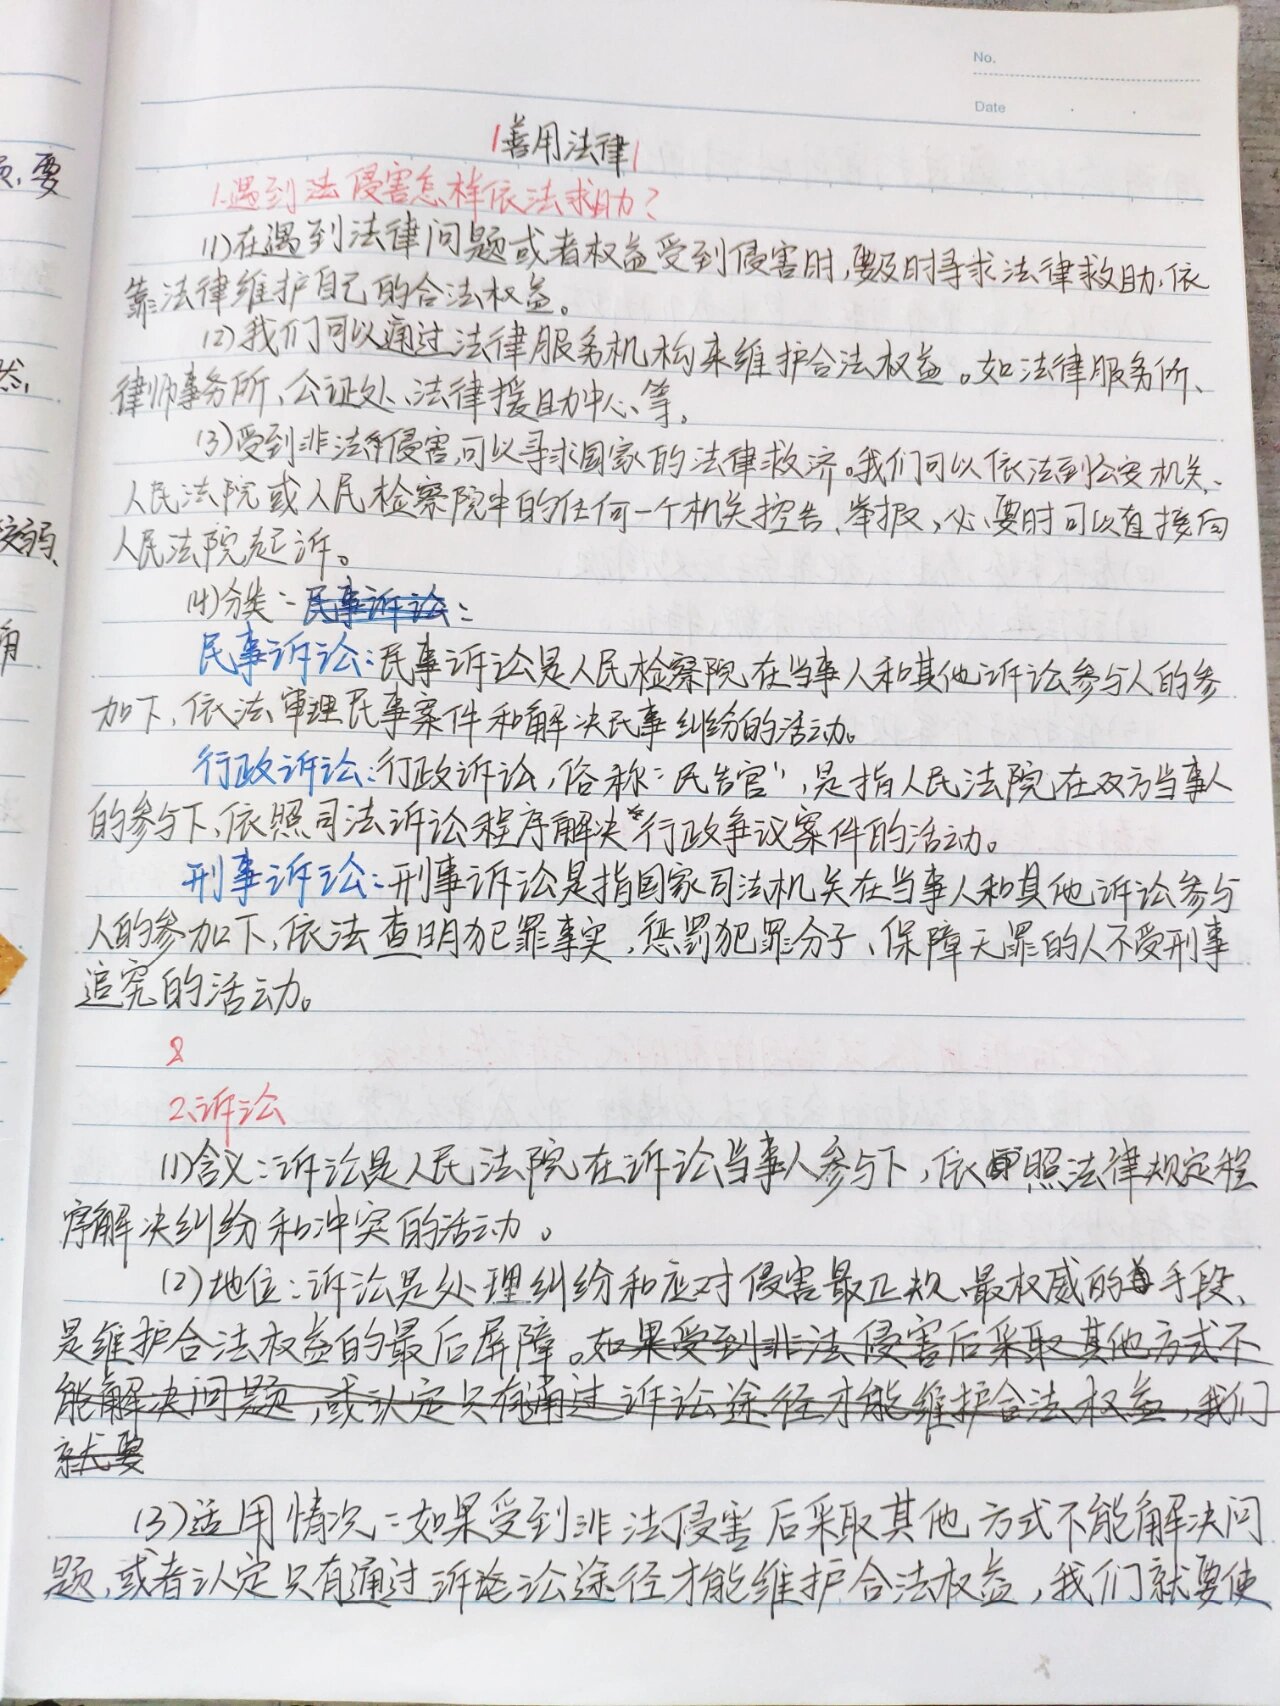 No.
Date
善用法律
1.遇到法侵害怎样依法求助?
(1)在遇到法律问题或者权益受到侵害时,要及时寻求法律救助,依
靠法律维护自己的合法权益。
(2)我们可以通过法律服务机构来维护合法权益。如法律服务所、
律师事务所、公证处、法律援助中心等。
(3)受到非法侵害,可以寻求国家的法律救济。我们可以依法到公安机关、
人民法院或人民检察院中的任何一个机关控告、举报,必要时可以直接向
人民法院起诉。
(4)分类:民事诉讼:
民事诉讼:民事诉讼是人民检察院在当事人和其他诉讼参与人的参
加下,依法审理民事案件和解决民事纠纷的活动。
行政诉讼:行政诉讼,俗称“民告官”,是指人民法院在双方当事人
的参与下,依照司法诉讼程序解决行政争议案件的活动。
刑事诉讼:刑事诉讼是指国家司法机关在当事人和其他诉讼参与
人的参加下,依法查明犯罪事实,惩罚犯罪分子,保障无罪的人不受刑事
追究的活动。
2
2.诉讼
(1)含义:诉讼是人民法院在诉讼当事人参与下,依照法律规定程
序解决纠纷和冲突的活动。
(2)地位:诉讼是处理纠纷和应对侵害最正规、最权威的手段,
是维护合法权益的最后屏障。如果受到非法侵害后采取其他方式不
能解决问题,或认定只有通过诉讼途径才能维护合法权益,我们
就要
(3)适用情况:如果受到非法侵害后采取其他方式不能解决问
题,或者认定只有通过诉讼途径才能维护合法权益,我们就要使